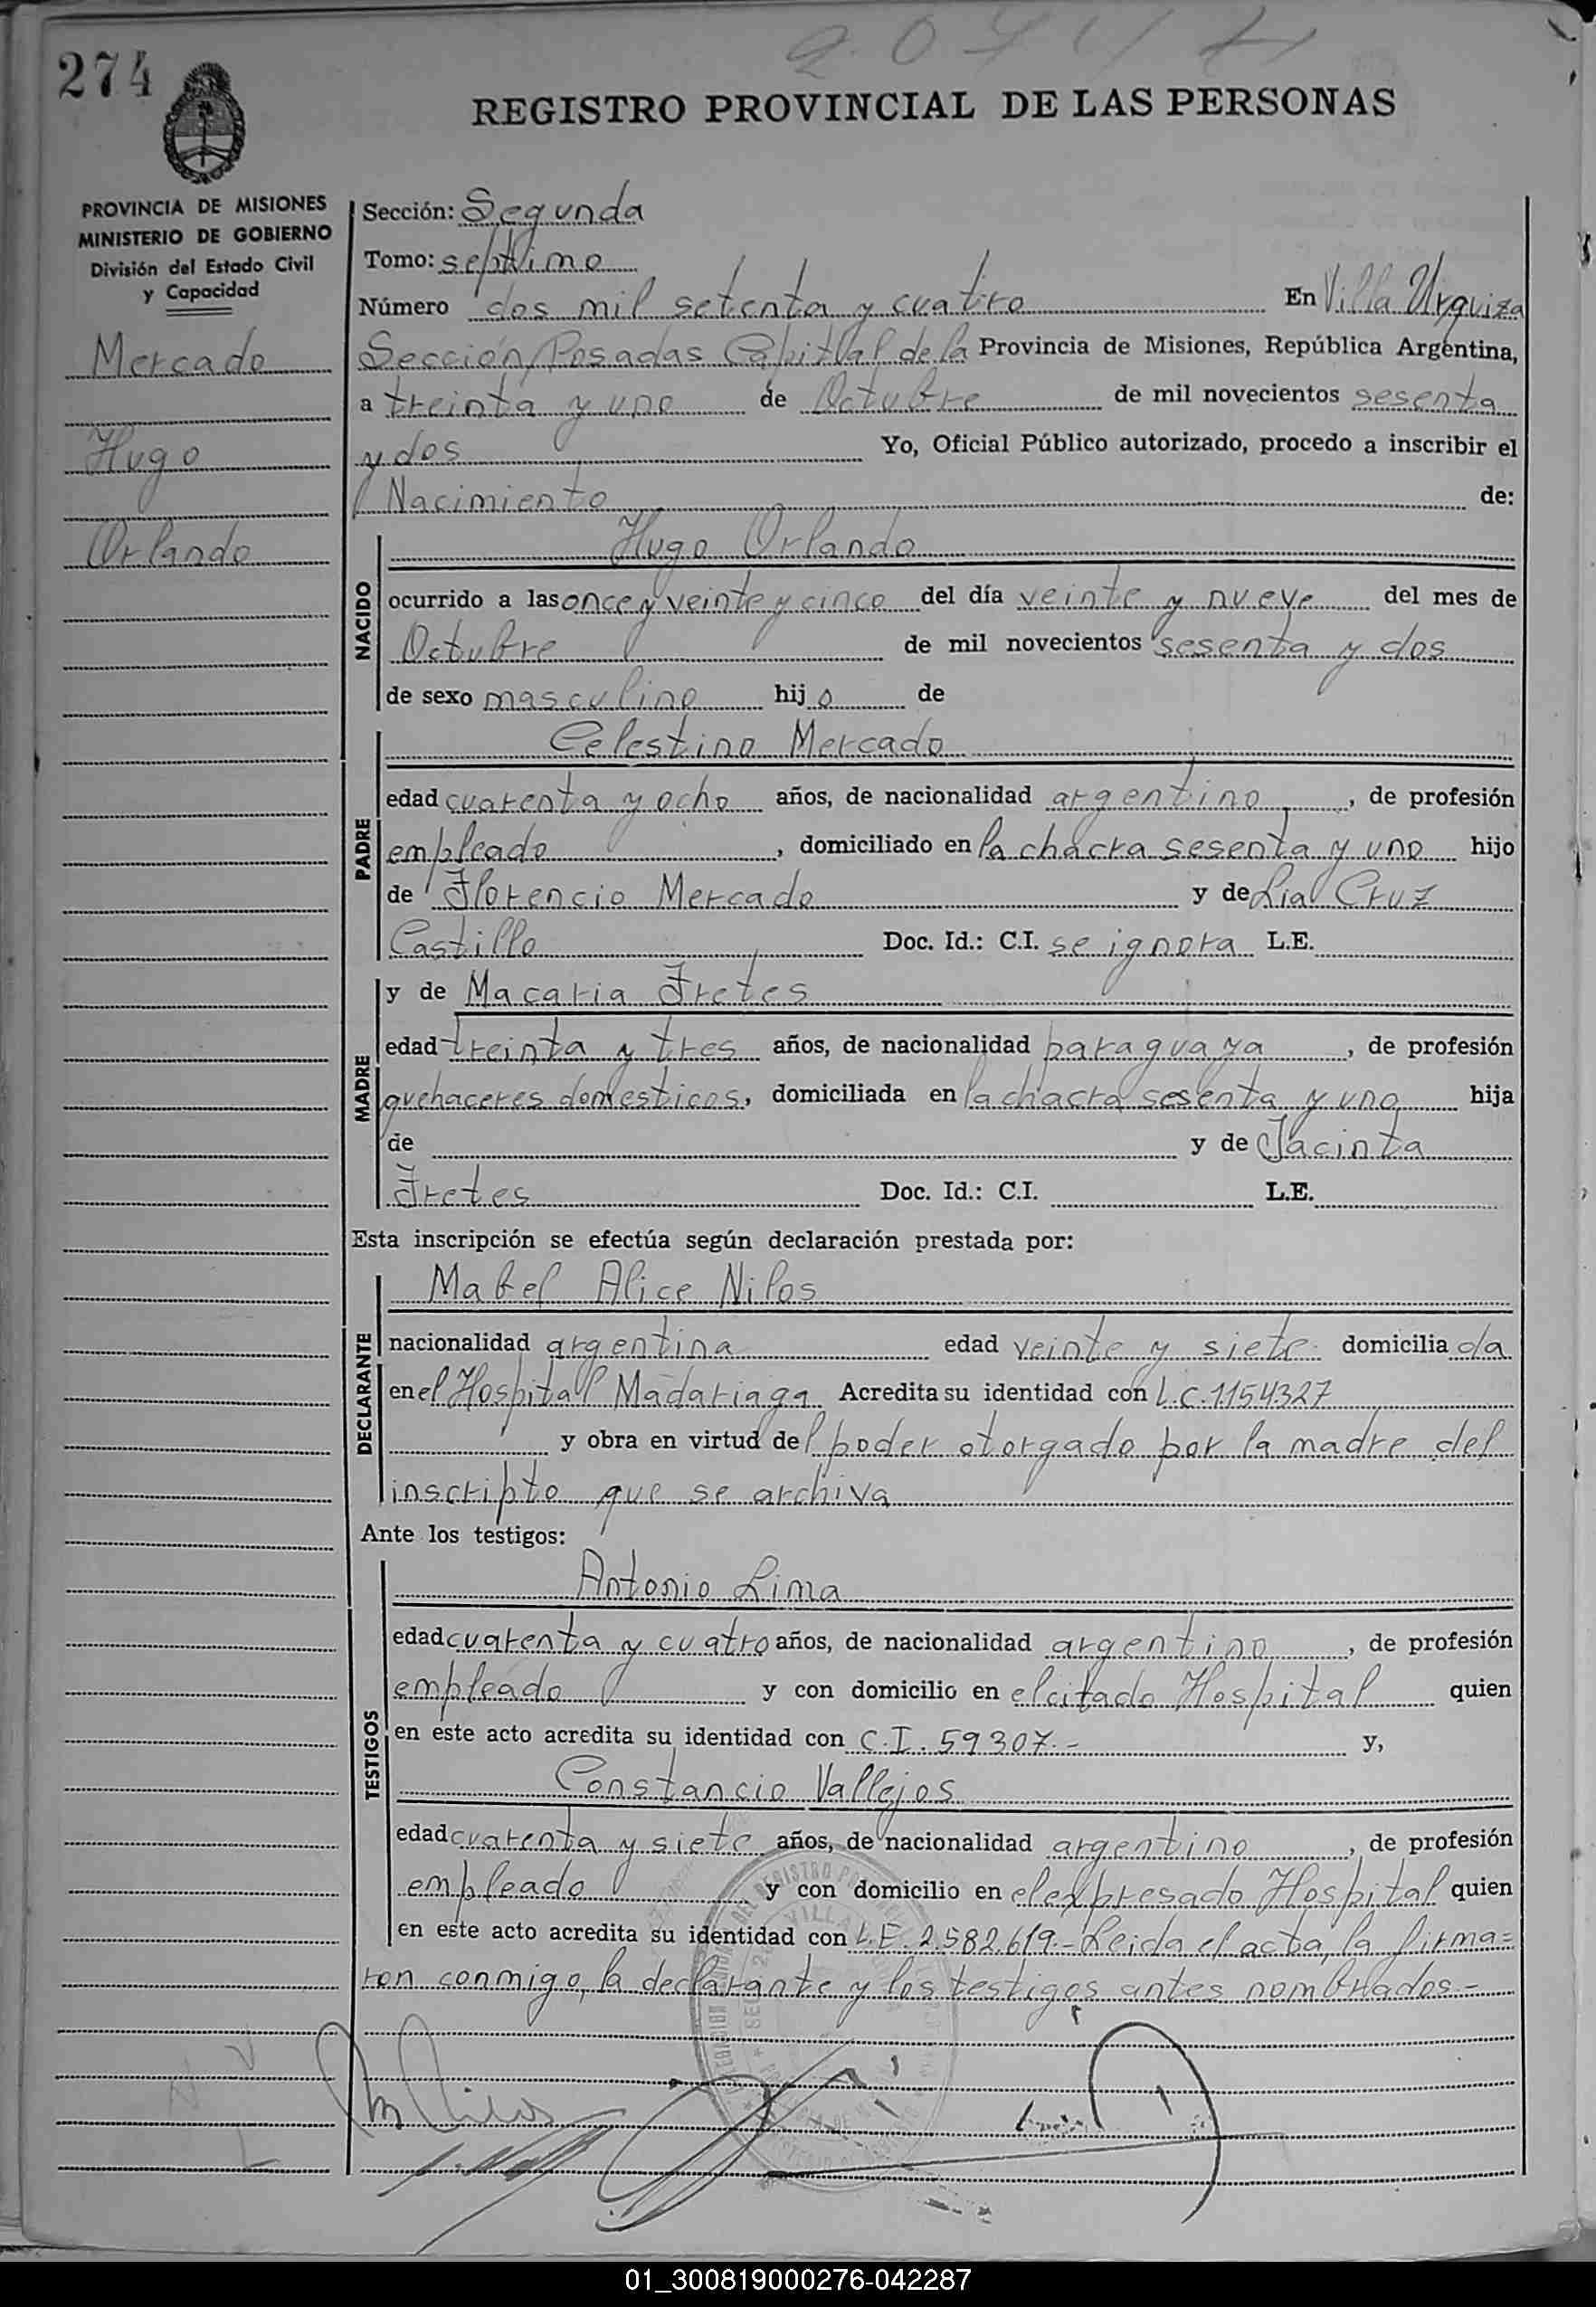 2074
274
REGISTRO PROVINCIAL DE LAS PERSONAS
PROVINCIA DE MISIONES
MINISTERIO DE GOBIERNO
División del Estado Civil
y Capacidad
Mercado
Hugo
Orlando
Sección: Segunda
Tomo: septimo
Número dos mil setenta y cuatro En Villa Urquiza
Sección, Posadas Capital de la Provincia de Misiones, República Argentina,
a treinta y uno de Octubre de mil novecientos sesenta
y dos Yo, Oficial Público autorizado, procedo a inscribir el
Nacimiento de:
NACIDO
Hugo Orlando
ocurrido a las once y veinte y cinco del día veinte y nueve del mes de
Octubre de mil novecientos sesenta y dos
de sexo masculino hijo de
PADRE
Celestino Mercado
edad cuarenta y ocho años, de nacionalidad argentino, de profesión
empleado, domiciliado en la chacra sesenta y uno hijo
de Florencio Mercado y de Lia Cruz
Castillo Doc. Id.: C.I. se ignora L.E.
MADRE
y de Macaria Fretes
edad treinta y tres años, de nacionalidad paraguaya, de profesión
quehaceres domesticos, domiciliada en la chacra sesenta y uno hija
de y de Jacinta
Fretes Doc. Id.: C.I. L.E.
Esta inscripción se efectúa según declaración prestada por:
DECLARANTE
Mabel Alice Nilos
nacionalidad argentina edad veinte y siete domiciliada
en el Hospital Madariaga Acredita su identidad con L.C. 1.154.327
y obra en virtud del poder otorgado por la madre del
inscripto que se archiva
Ante los testigos:
TESTIGOS
Antonio Lima
edad cuarenta y cuatro años, de nacionalidad argentino, de profesión
empleado y con domicilio en el citado Hospital quien
en este acto acredita su identidad con C.I. 59307.- y,
Constancio Vallejos
edad cuarenta y siete años, de nacionalidad argentino, de profesión
empleado y con domicilio en el expresado Hospital quien
en este acto acredita su identidad con L.E. 2.582.619.- Leida el acta, la firma=
ron conmigo, la declarante y los testigos antes nombrados.-
01_300819000276-042287